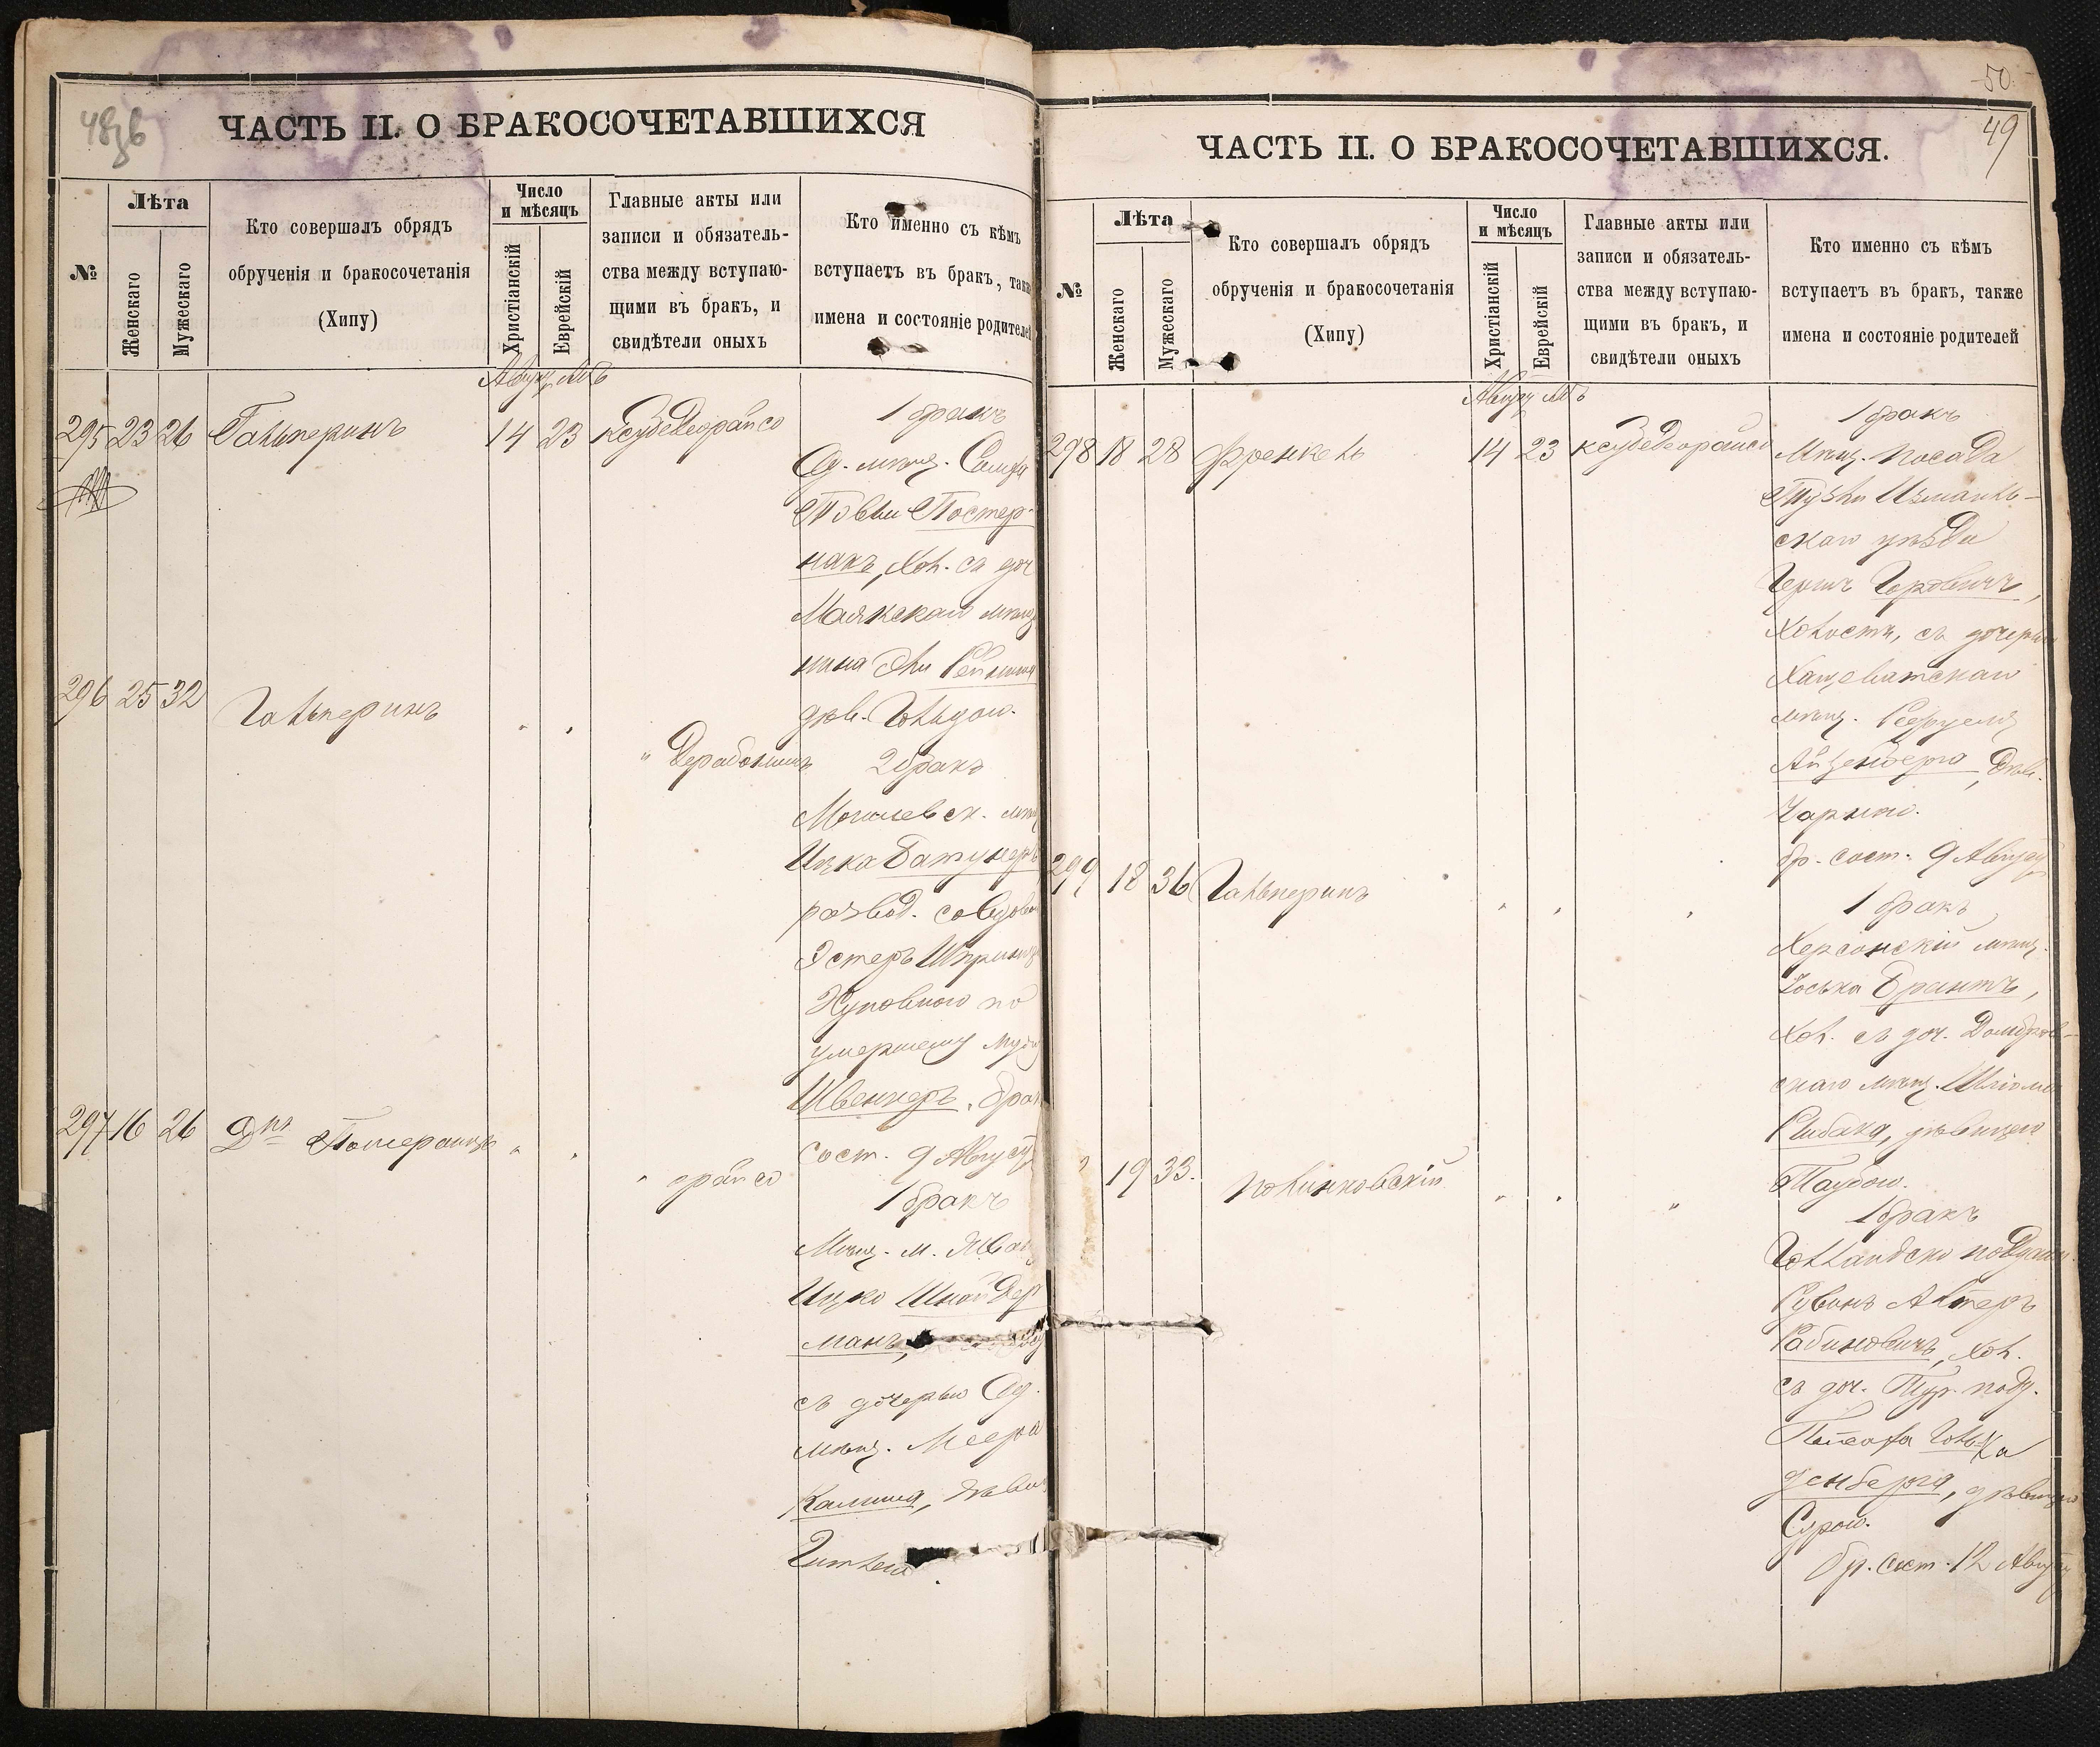 48об
ЧАСТЬ II. О БРАКОСОЧЕТАВШИХСЯ
№
Лѣта
Женскаго
Мужескаго
Кто совершалъ обрядъ
обрученія и бракосочетанія
(Хипу)
Число
и мѣсяцъ
Христіанскій
Еврейскій
Главные акты или
записи и обязатель-
ства между вступаю-
щими въ бракъ, и
свидѣтели оныхъ
Кто именно съ кѣмъ
вступаетъ въ бракъ, такж
имена и состояніе родителей
295 23 26 Гальперинъ 14 23
1 бракъ
Од. мѣщ.
Постер-
накъ, хол. съ доч
Маякскаго мѣщ
нина
дѣв. Гольдою.
296 25 32 Гальперинъ " "
2 бракъ
Могилевск. мѣщ
Ицка Батунеръ
развод. со вдовою
Эстеръ Шпринц
по
умершему мужу
Швенкеръ, брак
сост. 9 Август
297 16 26 Померанцъ " "
" орайсо
1 бракъ
Мѣщ. м.
Ицко Шнайдер
манъ,
съ дочерью Од.
мѣщ. Меера
дѣвиц
Гитлею.
50
49
ЧАСТЬ II. О БРАКОСОЧЕТАВШИХСЯ.
№
Лѣта
Женскаго
Мужескаго
Кто совершалъ обрядъ
обрученія и бракосочетанія
(Хипу)
Число
и мѣсяцъ
Христіанскій
Еврейскій
Главные акты или
записи и обязатель-
ства между вступаю-
щими въ бракъ, и
свидѣтели оныхъ
Кто именно съ кѣмъ
вступаетъ въ бракъ, также
имена и состояніе родителей
298 18 28 Френкель 14 23
1 бракъ
Мѣщ. посада
Тузлы Измаиль-
скаго уѣзда
Гершъ Горовичъ,
холостъ, съ дочерью
Хащеватскаго
мѣщ.
Айзенберга, дѣв.
Чарною.
бр. сост. 9 Август
299 18 36 Гальперинъ " " "
1 бракъ
Херсонскій мѣщ.
Іоська Брантъ,
хол. съ доч. Домбров-
скаго мѣщ. Шліомы
Рыбака, дѣвицею
Таубою.
19 33. Полинковскій " " "
1 бракъ
Голландско поддан.
Рувинъ Алтеръ
Рабиновичъ, хол.
съ доч. Тур.подд.
Голь-
денберга, дѣвицею
Сурою.
бр. сост. 12 Август